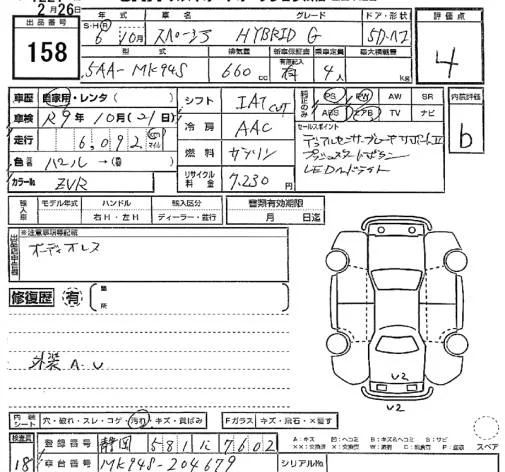 2月26日
出品番号
158
年式 車名 グレード ドア・形状
S・H・R 6年10月 スペーシア HYBRID G 5D・ハコ
評価点
4
型式 排気量 新車保証書 乗車定員 最大積載量
5AA-MK94S 660cc 有 4人 kg
車歴 自家用・レンタ( )
車検 R9年10月(21日)
走行 6,092 Km マイル
色替 パール→( )
カラーNo ZVR
シフト IAT
冷房 AAC
燃料 ガソリン
リサイクル料金 7,230円
純正のみ
PS PW AW SR
ABS エアB TV ナビ
内装評価
b
セールスポイント
デュアルセンサーブレーキサポートⅡ
プッシュスタートボタン
LEDヘッドライト
輸入車 モデル年式 ハンドル 輸入区分 書類有効期限
右H・左H ディーラー・並行 月 日迄
※注意事項等記載
オーディオレス
修復歴 有
箇所
外装 A・U
U2
U2
内装 シート 穴・破れ・スレ・コゲ・汚れ・キズ・黄ばみ
Fガラス キズ・飛石・X要す
スペア
検査員
18
登録番号 静岡 581 に 7602
車台番号 MK94S-204679
シリアルNo.
A:キズ U:ヘコミ B:キズ&ヘコミ S:サビ